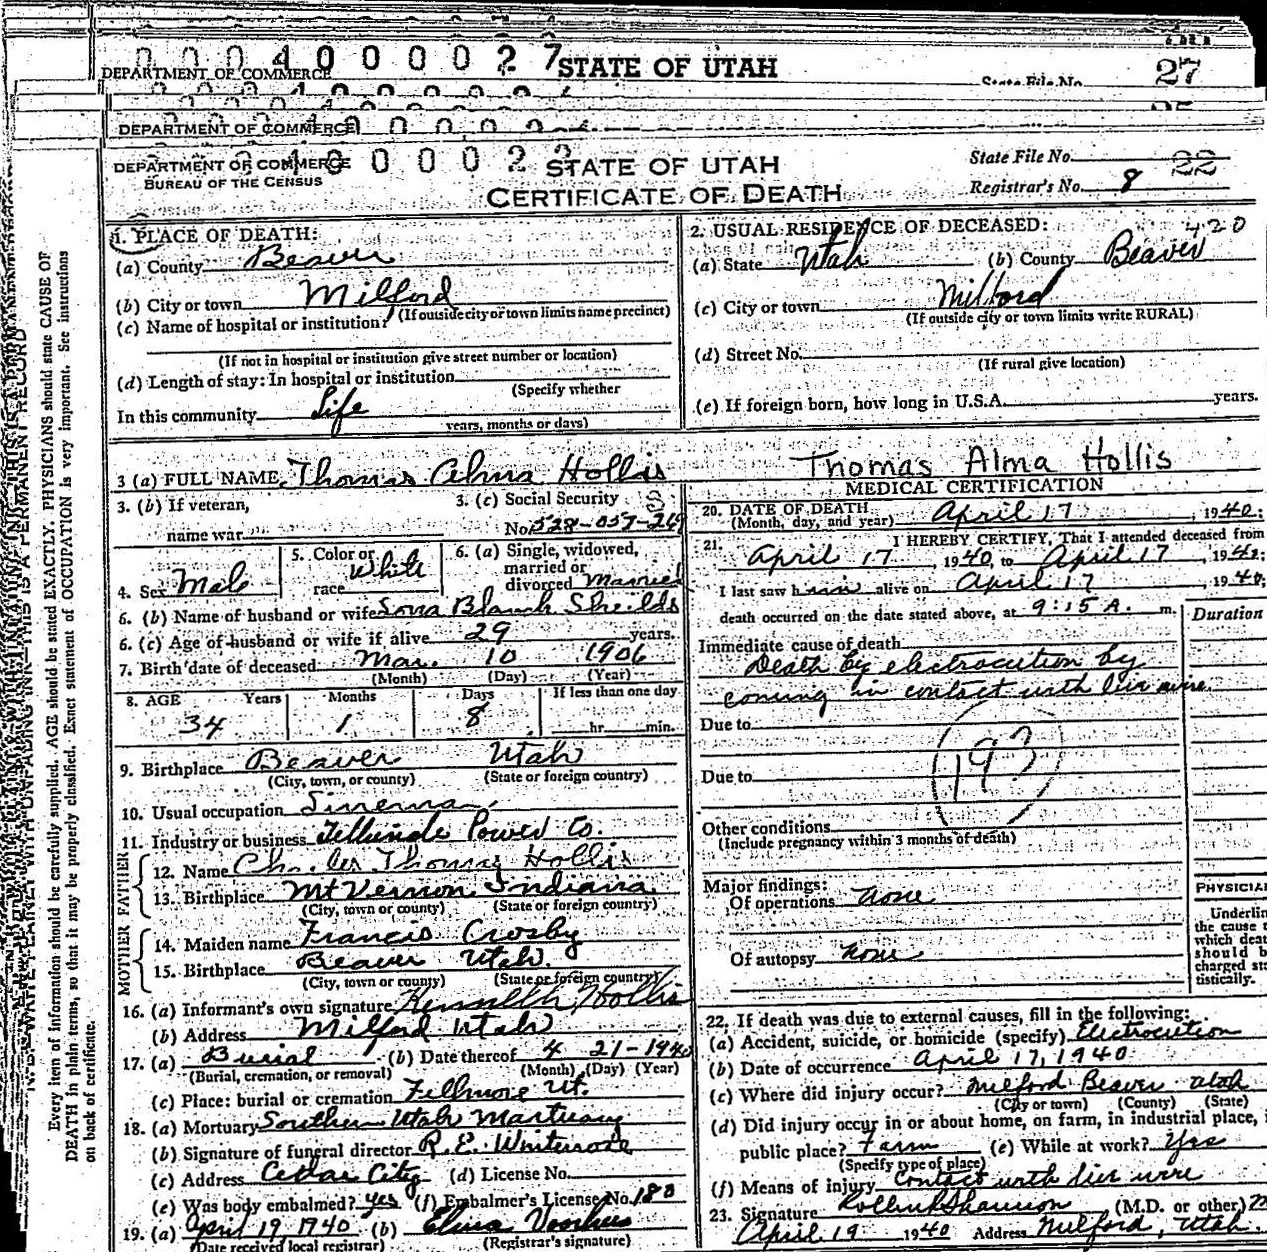 0004000027 STATE OF UTAH
DEPARTMENT OF COMMERCE
State File No. 27
DEPARTMENT OF COMMERCE
DEPARTMENT OF COMMERCE STATE OF UTAH State File No. 22
BUREAU OF THE CENSUS CERTIFICATE OF DEATH Registrar's No. 8
1. PLACE OF DEATH:
(a) County Beaver
(b) City or town Milford
(If outside city or town limits name precinct)
(c) Name of hospital or institution:
(If not in hospital or institution give street number or location)
(d) Length of stay: In hospital or institution
(Specify whether
In this community Life
years, months or days)
2. USUAL RESIDENCE OF DECEASED: 420
(a) State Utah (b) County Beaver
(c) City or town Milford
(If outside city or town limits write RURAL)
(d) Street No.
(If rural give location)
(e) If foreign born, how long in U.S.A. years.
3 (a) FULL NAME Thomas Alma Hollis
3. (b) If veteran,
name war
3. (c) Social Security
No. 528-05
4. Sex Male
5. Color or
race White
6. (a) Single, widowed,
married or
divorced Married
6. (b) Name of husband or wife Blanch Sheilds
6. (c) Age of husband or wife if alive 29 years.
7. Birth date of deceased Mar. 10 1906
(Month) (Day) (Year)
8. AGE Years Months Days If less than one day
34 1 8 hr. min.
9. Birthplace Beaver Utah
(City, town, or county) (State or foreign country)
10. Usual occupation Lineman
11. Industry or business Telluride Power Co.
FATHER
12. Name Charles Thomas Hollis
13. Birthplace Mt Vernon Indiana
(City, town or county) (State or foreign country)
MOTHER
14. Maiden name Francis Crosby
15. Birthplace Beaver Utah
(City, town or county) (State or foreign country)
16. (a) Informant's own signature Kenneth Hollis
(b) Address Milford Utah
17. (a) Burial (b) Date thereof 4 21-1940
(Burial, cremation, or removal) (Month) (Day) (Year)
(c) Place: burial or cremation Fillmore Ut.
18. (a) Mortuary Southern Utah Mortuary
(b) Signature of funeral director R. E.
(c) Address Cedar City (d) License No.
(e) Was body embalmed? yes (f) Embalmer's License No. 180
19. (a) April 19 1940 (b)
(Date received local registrar) (Registrar's signature)
Thomas Alma Hollis
MEDICAL CERTIFICATION
20. DATE OF DEATH
(Month, day, and year) April 17, 1940;
21. I HEREBY CERTIFY, That I attended deceased from
April 17, 1940, to April 17, 1940;
I last saw him alive on April 17, 1940;
death occurred on the date stated above, at 9:15 A. m.
Duration
Immediate cause of death
Death by electrocution by
coming in contact with live wire.
Due to
193
Due to
Other conditions
(Include pregnancy within 3 months of death)
Major findings:
Of operations none
Of autopsy none
PHYSICIAN
Underlin
the cause t
which deat
should b
charged sta
tistically.
22. If death was due to external causes, fill in the following:
(a) Accident, suicide, or homicide (specify) Electrocution
(b) Date of occurrence April 17, 1940
(c) Where did injury occur? Milford Beaver Utah
(City or town) (County) (State)
(d) Did injury occur in or about home, on farm, in industrial place, i
public place? Farm (e) While at work? Yes
(Specify type of place)
(f) Means of injury Contact with live wire
23. Signature (M.D. or other)
April 19 1940 Address Milford, Utah.
Every item of information should be carefully supplied. AGE should be stated EXACTLY. PHYSICIANS should state CAUSE OF
DEATH in plain terms, so that it may be properly classified. Exact statement of OCCUPATION is very important. See instructions
on back of certificate.